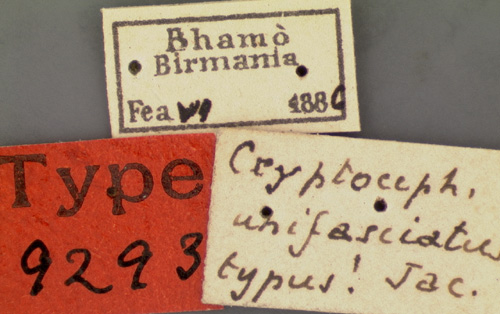 Bhamò
Birmania
Fea VI 1886
Type
9293
Cryptoceph.
unifasciatus
typus! Jac.